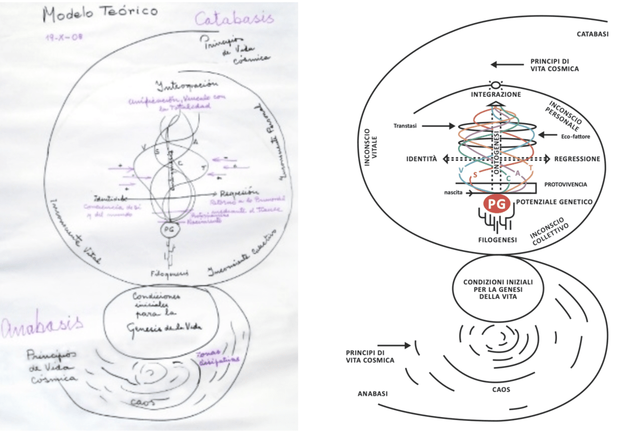 Modelo Teórico
Catabasis
Principios
de Vida
cósmica
Integración
Inconsciente Personal
V
A
S
C
T
Identidad
Regresión
PG
Filogenesis
Inconsciente Vital
Inconsciente Colectivo
Condiciones
iniciales
para la
Genesis de la Vida
Anabasis
Principios
de Vida
Cosmica
Zonas
disipativas
caos
CATABASI
PRINCIPI DI
VITA COSMICA
INTEGRAZIONE
INCONSCIO
PERSONALE
INCONSCIO
VITALE
Transtasi
Eco-fattore
ONTOGENESI
IDENTITÀ
REGRESSIONE
V
A
S
C
T
PROTOVIVENCIA
nascita
PG
POTENZIALE GENETICO
FILOGENESI
INCONSCIO
COLLETTIVO
CONDIZIONI INIZIALI
PER LA GENESI
DELLA VITA
PRINCIPI DI
VITA COSMICA
CAOS
ANABASI